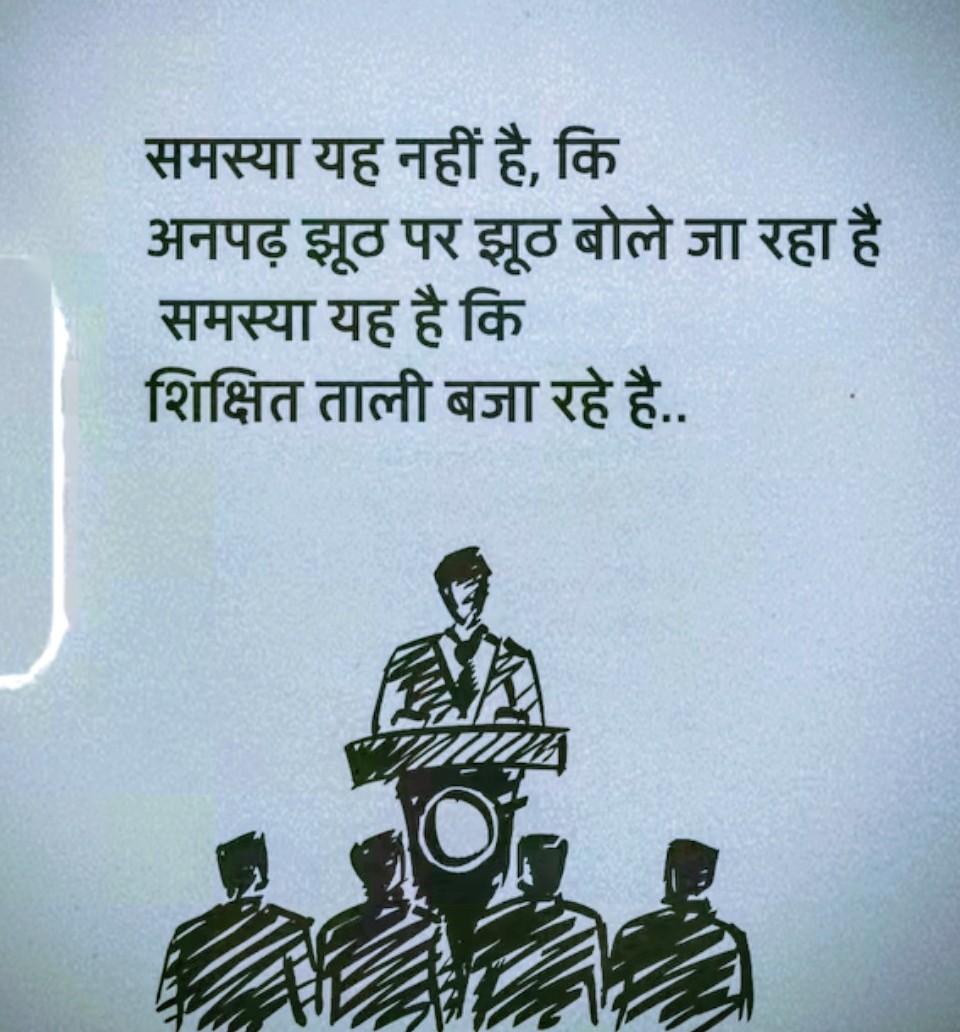 समस्या यह नहीं है, कि
अनपढ़ झूठ पर झूठ बोले जा रहा है
समस्या यह है कि
शिक्षित ताली बजा रहे है..